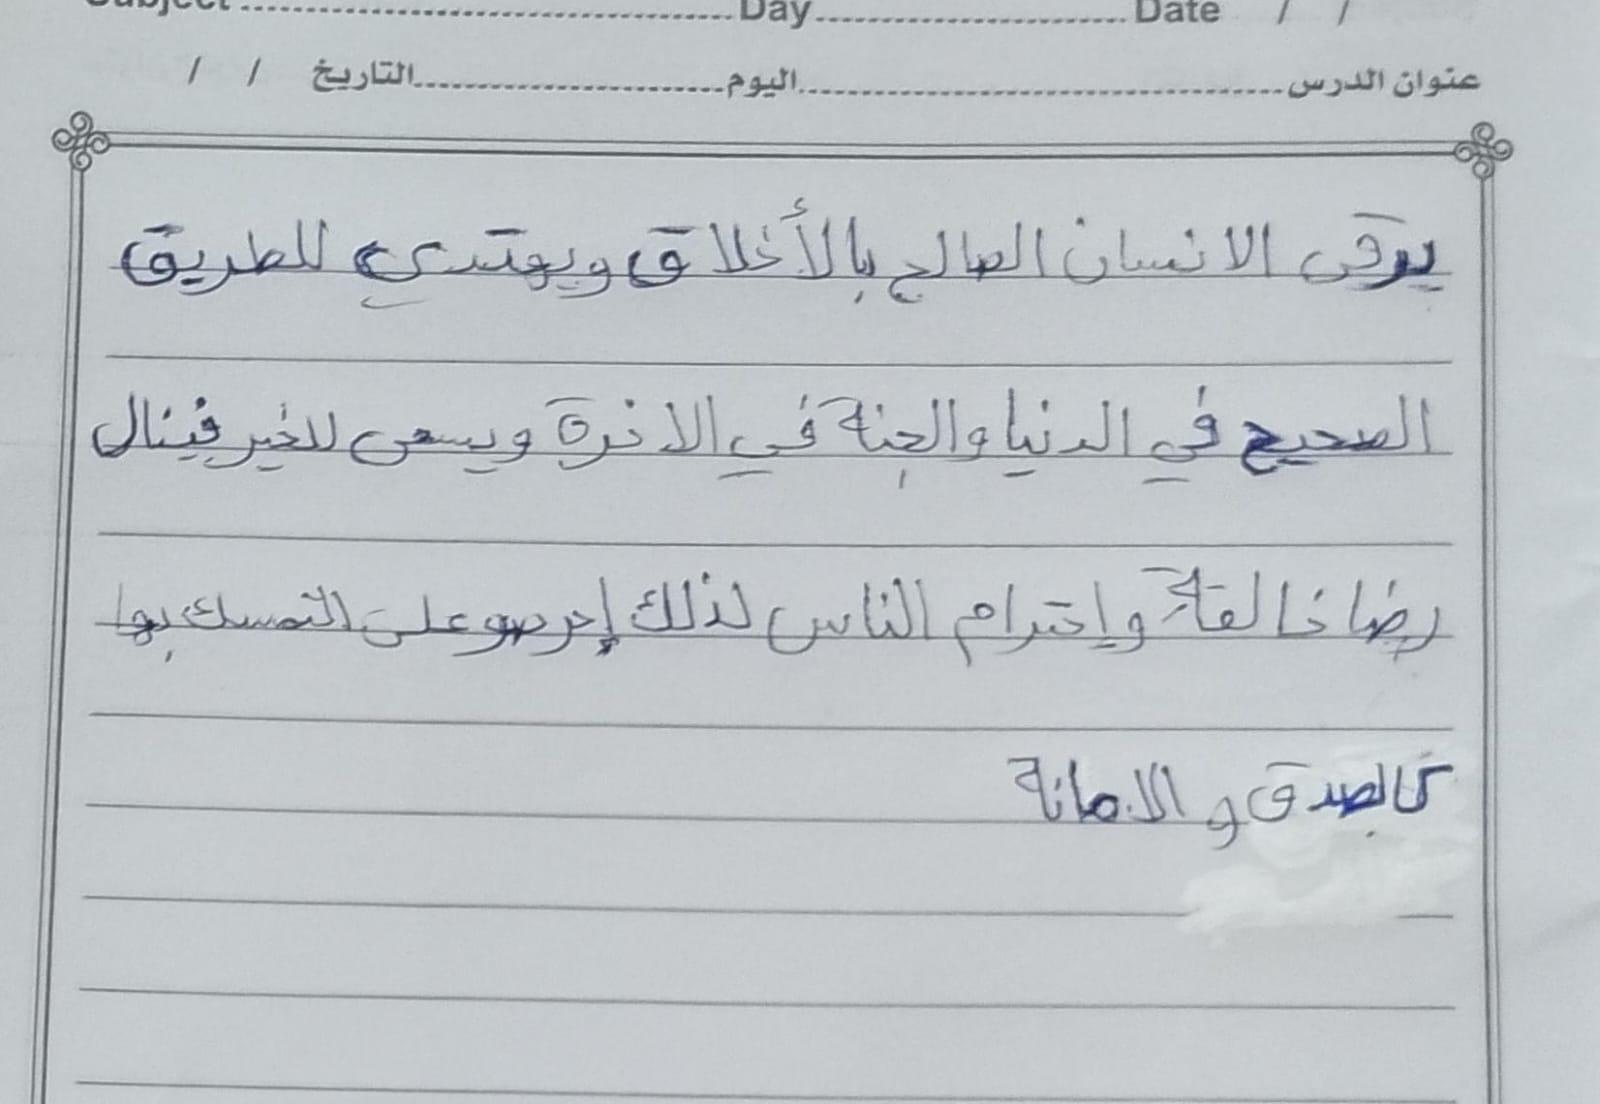 Subject ........ Day ........ Date / /
عنوان الدرس ........ اليوم ........ التاريخ / /
يرقى الانسان الصالح بالأخلاق ويهتدي للطريق
الصحيح في الدنيا والجنة في الاخرة ويسعى للخير فينال
رضا خالقة واحترام الناس لذلك إحرصو على التمسك بها
كالصدق و الامانة